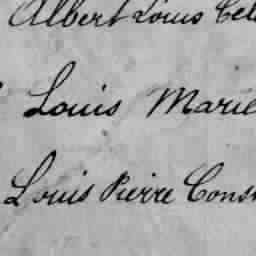 Albert Louis Cel
Louis Marie
Louis Pierre Cons